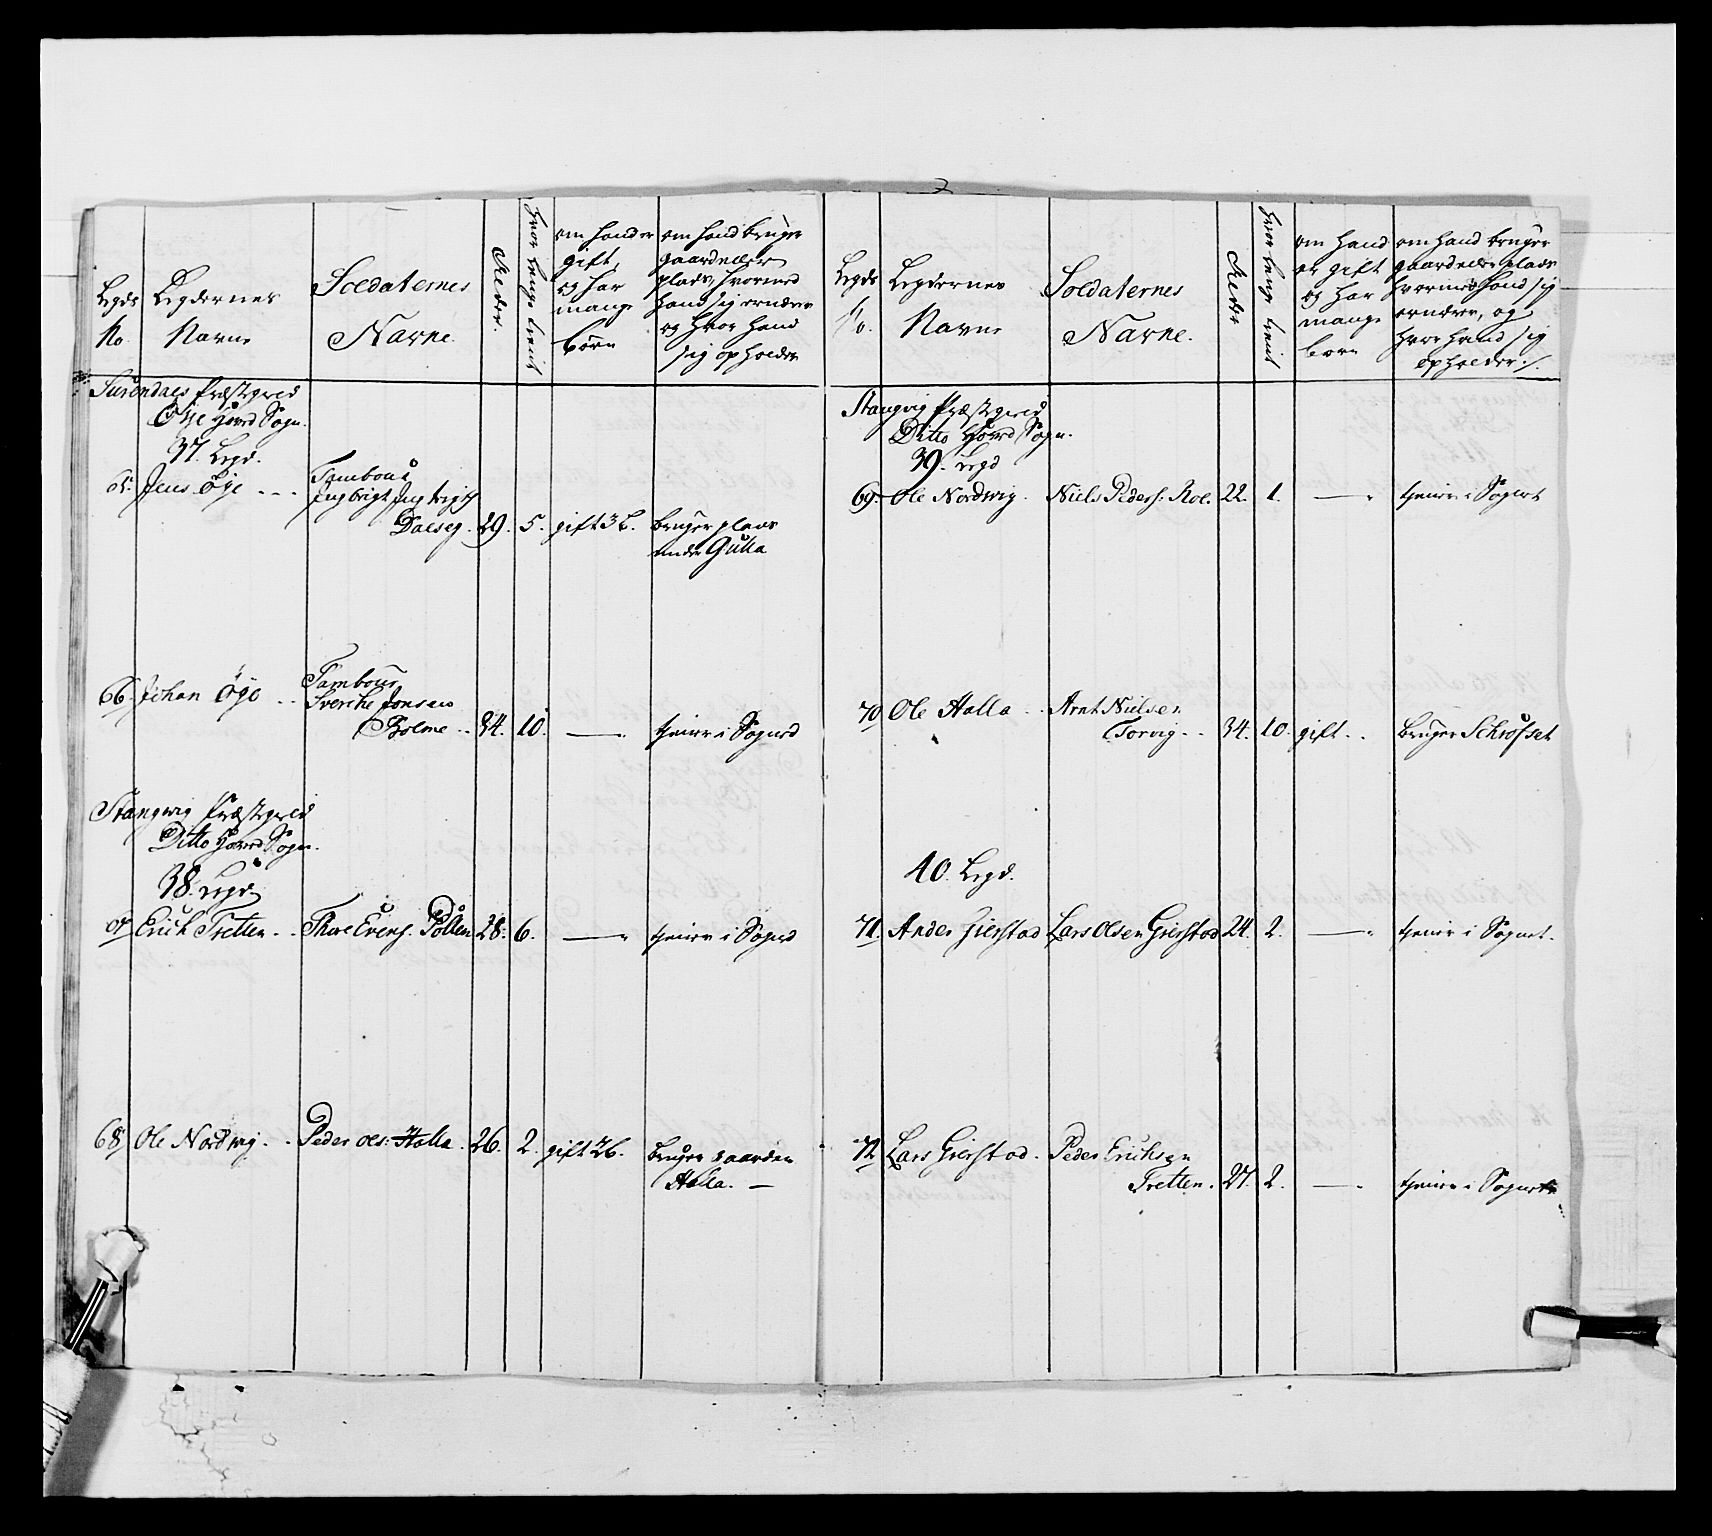 Legds
No.
Legdernes
Navne
Soldaternes
Navne.
Alder.
hvor lenge tient
om hand er
gift,
og har
mange
börn
om hand bruger
gaard eller
plads, hvormed
hand sig ernærer
og hvor hand
sig opholder
Surendals Præstegield
Øye Hoved Sogn.
37. Legd.
65. Jens Öye - - - Tambour
Ingbrigt Ingbrigts
Dalseg. 29. 5. gift 3 b. bruger plads
under Gulla
66. Johan Öye - - Tambour
Sverche Jonsen
Bolme - - 34. 10. — tiener i Sogned
Stangvig Præstegield
Ditto Hoved Sogn.
38. Legd.
67 Erich Tretten - - Thore Evens. Polten 28. 6. — tiener i Sogned
68 Ole Nordvig - - Peder Ols: Halla. 26. 2. gift 2 b. bruger gaarden
Halla. —
Legds
No.
Legdernes
Navne
Soldaternes
Navne.
Alder
hvor lenge tient
om hand
er gift
og har
mange
born
om hand bruger
gaard eller plads
hvormed hand sig
ernærer, og
hvor hand sig
opholder
Stangvig Præstegield
Ditto Hoved Sogn.
39. Legd
69. Ole Nordwig. Niels Peders: Roe. 22. 1. — tiener i Sognet
70 Ole Halla - - Arnt Nielsen
Torvig - - 34. 10. gift - - bruger Schrofset
40. Legd.
71. Ander Gierstad Lars Olsen Gierstad 24. 2. — tiener i Sognet.
72 Lars Gierstad. Peder Erichsen
Tretten. 27. 2. — tiener i Sognet